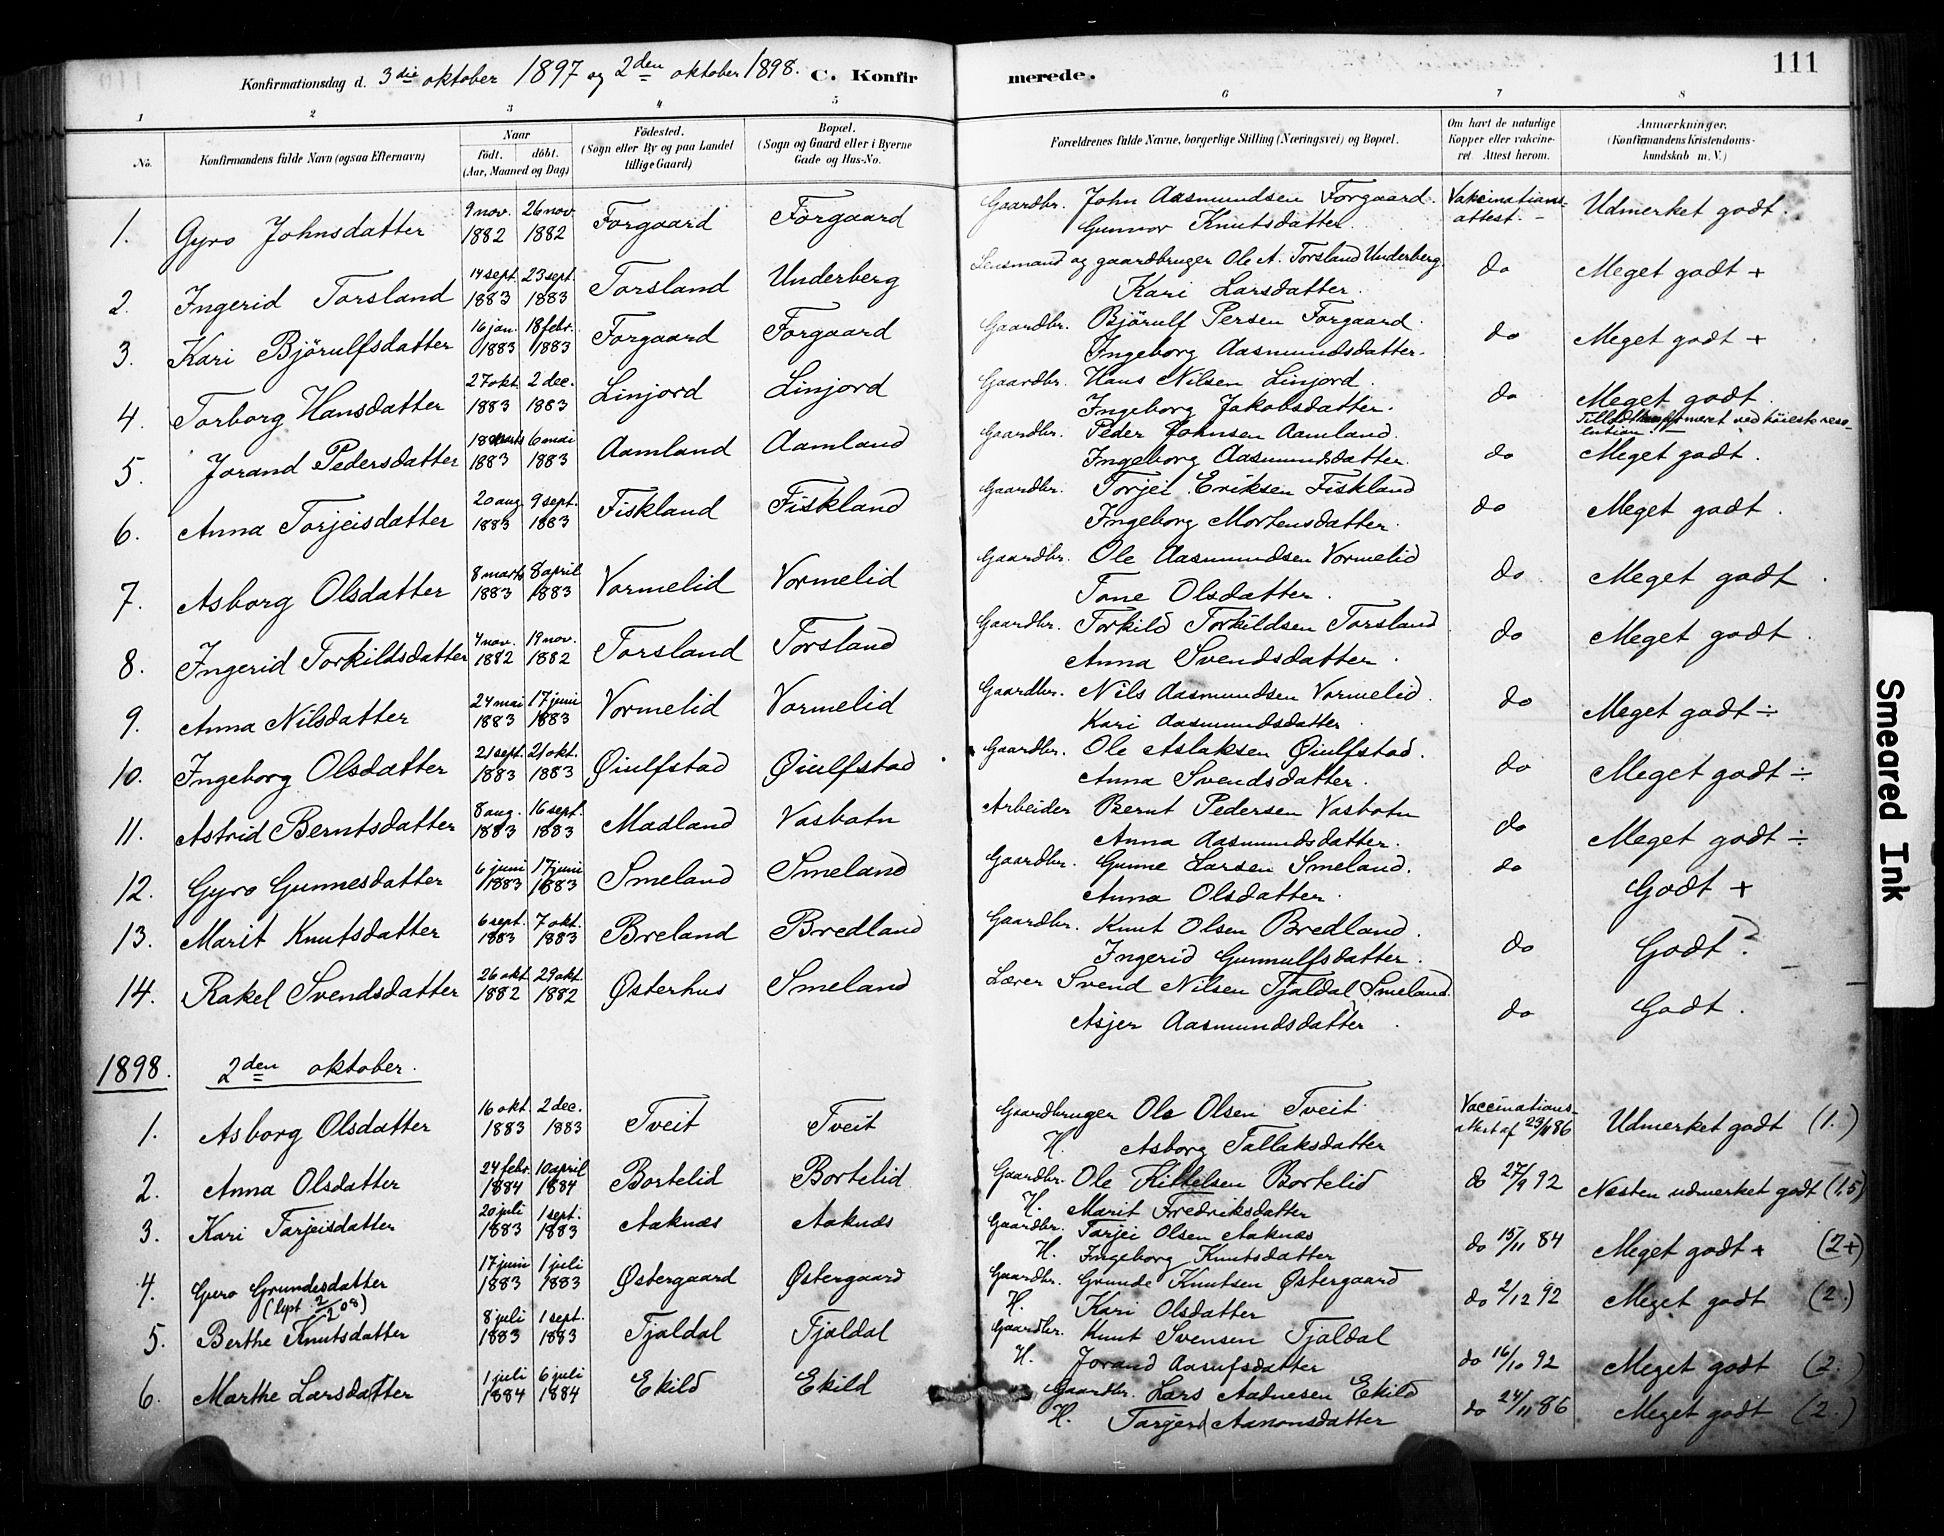 111
Konfirmationsdag d. 3die oktober 1897 og 2den oktober 1898. C. Konfirmerede.
1 2 3 4 5 6 7 8
No.
Konfirmandens fulde Navn (ogsaa Efternavn)
Naar
födt. döbt.
(Aar, Maaned og Dag)
Födested.
(Sogn eller By og paa Landet
tillige Gaard)
Bopæl.
(Sogn og Gaard eller i Byerne
Gade og Hus-No.
Forældrenes fulde Navne, borgerlige Stilling (Næringsvei) og Bopæl.
Om havt de naturlige
Kopper eller vakcine-
ret. Attest herom.
Anmærkninger,
(Konfirmandens Kristendoms-
kundskab m. V.)
1. Gyro Johnsdatter 9 nov. 1882 26 nov. 1882 Forgaard Forgaard Gaardbr. John Aasmundsen Forgaard. Vakcinations-
Gunvor Knutsdatter attest. Udmerket godt.
2. Ingerid Torsland 14 sept. 1883 23 sept. 1883 Torsland Underberg Lensmand og gaardbruger Ole A. Torsland Underberg. do Meget godt +
Kari Larsdatter.
3. Kari Björulfsdatter 16 jan. 1883 18 febr. 1883 Forgaard Forgaard Gaardbr. Björulf Persen Forgaard. do Meget godt +
Ingeborg Aasmundsdatter.
4. Torborg Hansdatter 27 okt. 1883 2 dec. 1883 Linjord Linjord Gaardbr. Hans Nilsen Linjord. do Meget godt.
Ingeborg Jakobsdatter.
5. Jorand Pedersdatter 18 marts 1883 6 mai 1883 Aamland Aamland Gaardbr. Peder Johnsen Aamland. do ved höieste reso-
lution. Meget godt.
Ingeborg Aasmundsdatter.
6. Anna Torjeisdatter 20 aug. 1883 9 sept. 1883 Fiskland Fiskland Gaardbr. Torjei Eriksen Fiskland do Meget godt.
Ingeborg Mortensdatter.
7. Asborg Olsdatter 8 marts 1883 8 april 1883 Vormelid Vormelid Gaardbr. Ole Aasmundsen Vormelid do Meget godt.
Tone Olsdatter.
8. Ingerid Torkildsdatter 4 nov. 1882 19 nov. 1882 Torsland Torsland Gaardbr. Torkild Torkildsen Torsland do Meget godt.
Anna Svendsdatter.
9. Anna Nilsdatter 24 mai 1883 17 juni 1883 Vormelid Vormelid Gaardbr. Nils Aasmundsen Vormelid. do Meget godt ÷
Kari Aasmundsdatter.
10. Ingeborg Olsdatter 21 sept. 1883 21 okt. 1883 Øiulfstad Øiulfstad Gaardbr. Ole Aslaksen Øiulfstad. do Meget godt ÷
Anna Svendsdatter.
11. Astrid Berntsdatter 8 aug. 1883 16 sept. 1883 Madland Vasbotn Arbeider Bernt Pedersen Vasbotn do Meget godt ÷
Anna Aasmundsdatter.
12. Gyro Gunnesdatter 6 juni 1883 17 juni 1883 Smeland Smeland Gaardbr. Gunne Larsen Smeland. do Godt +
Anna Olsdatter.
13. Marit Knutsdatter 6 sept. 1883 7 okt. 1883 Breland Bredland Gaardbr. Knut Olsen Bredland. do Godt.
Ingerid Gunnulfsdatter.
14. Rakel Svendsdatter 26 okt. 1882 29 okt. 1882 Østerhus Smeland Lærer Svend Nilsen Tjaldal Smeland. do Godt.
Asjer Aasmundsdatter
1898. 2den oktober.
1. Asborg Olsdatter 16 okt. 1883 2 dec. 1883 Tveit Tveit Gaardbruger Ole Olsen Tveit. Vaccinations-
H. Asborg Tallaksdatter attest af 23/11 86 Udmerket godt (1.)
2. Anna Olsdatter 24 febr. 1884 10 april 1884 Bortelid Bortelid Gaardbr. Ole Kittelsen Bortelid do 27/9 92 Næsten udmerket godt (1,5)
H. Marit Fredriksdatter
3. Kari Tarjeisdatter 20 juli 1883 1 sept. 1883 Aaknæs Aaknæs Gaardbr. Tarjei Olsen Aaknæs do 15/11 84 Meget godt + (2+)
H. Ingeborg Knutsdatter
4. Gyro Grundesdatter 17 juni 1883 1 juli 1883 Østergaard Østergaard Gaardbr. Grunde Knutsen Østergaard do 2/12 92 Meget godt (2.)
(lyst 2/2 08) H. Kari Olsdatter
5. Berthe Knutsdatter 8 juli 1883 1 sept. 1883 Tjaldal Tjaldal Gaardbr. Knut Svensen Tjaldal do 16/10 92 Meget godt (2.)
H. Jorand Aasulfsdatter
6. Marthe Larsdatter 1 juli 1884 6 juli 1884 Ekild Ekild Gaardbr. Lars Aadnesen Ekild do 24/11 86 Meget godt (2.)
H. Tarjerd Aanonsdatter
Smeared Ink